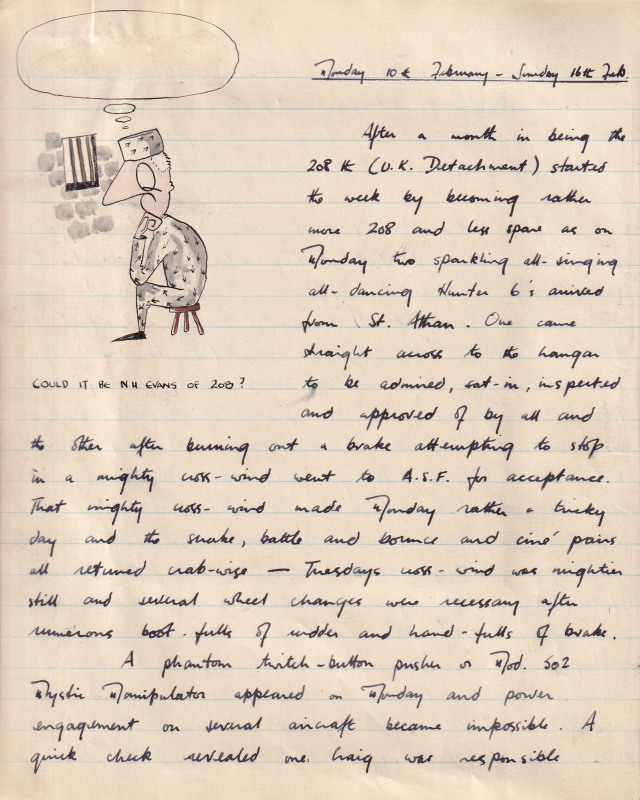 Monday 10th February - Sunday 16th Feb.
After a month in being the
208 th (U.K. Detachment) started
the week by becoming rather
more 208 and less spare as on
Monday two sparkling all-singing
all-dancing Hunter 6's arrived
from St. Athan. One came
straight across to the hangar
COULD IT BE N.H EVANS OF 208?
to be admired, sat-in, inspected
and approved of by all and
the other after burning out a brake attempting to stop
in a mighty cross-wind went to A.S.F. for acceptance.
That mighty cross-wind made Monday rather a tricky
day and the snake, battle and bounce and ciné pairs
all returned crab-wise — Tuesdays cross-wind was mightier
still and several wheel changes were necessary after
numerous boot-fulls of rudder and hand-fulls of brake.
A phantom twitch-button pusher or Mod. 502
Mystic Manipulator appeared on Monday and power
engagement on several aircraft became impossible. A
quick check revealed one Craig was responsible